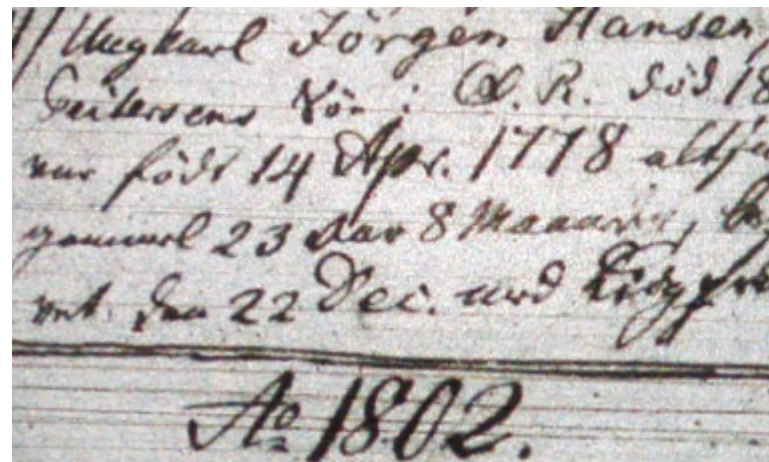 Ungkarl Jörgen Hansen,
Sön i Ö. R. död 18
var födt 14 Apr. 1778 altsaa
gammel 23 Aar 8 Maaneder, be
vet den 22 Dec. med
Ao 1802.